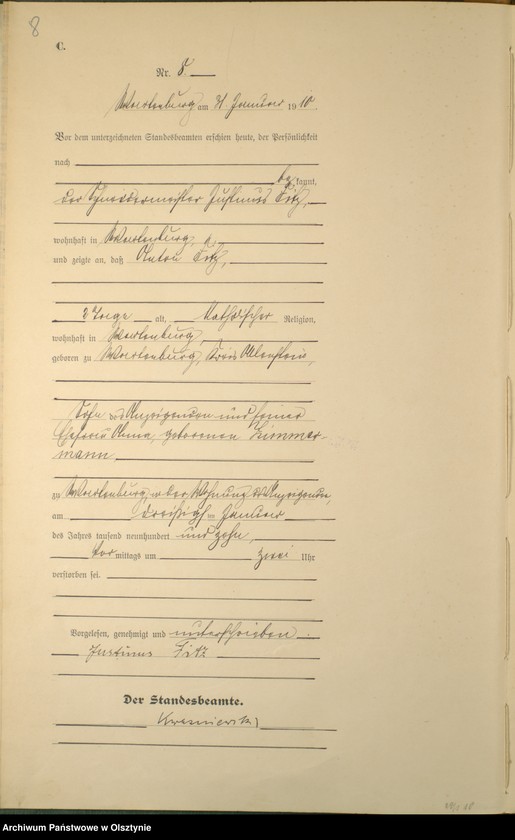 8
C.
Nr. 8
Wartenburg am 31 Januar 1910.
Vor dem unterzeichneten Standesbeamten erschien heute, der Persönlichkeit
nach
be kannt,
der Schneidermeister Justinus
wohnhaft in Wartenburg,
und zeigte an, daß Anton
2 Tage alt, katholischer Religion,
wohnhaft in Wartenburg,
geboren zu Wartenburg, Kreis Allenstein,
Sohn des Anzeigenden und seiner
Ehefrau Anna, geborenen Zimmer-
mann
zu Wartenburg, in der Wohnung des Anzeigenden,
am dreißigsten Januar
des Jahres tausend neunhundert und zehn,
Vor mittags um zwei Uhr
verstorben sei.
Vorgelesen, genehmigt und unterschrieben.
Justinus
Der Standesbeamte.
Archiwum Państwowe w Olsztynie